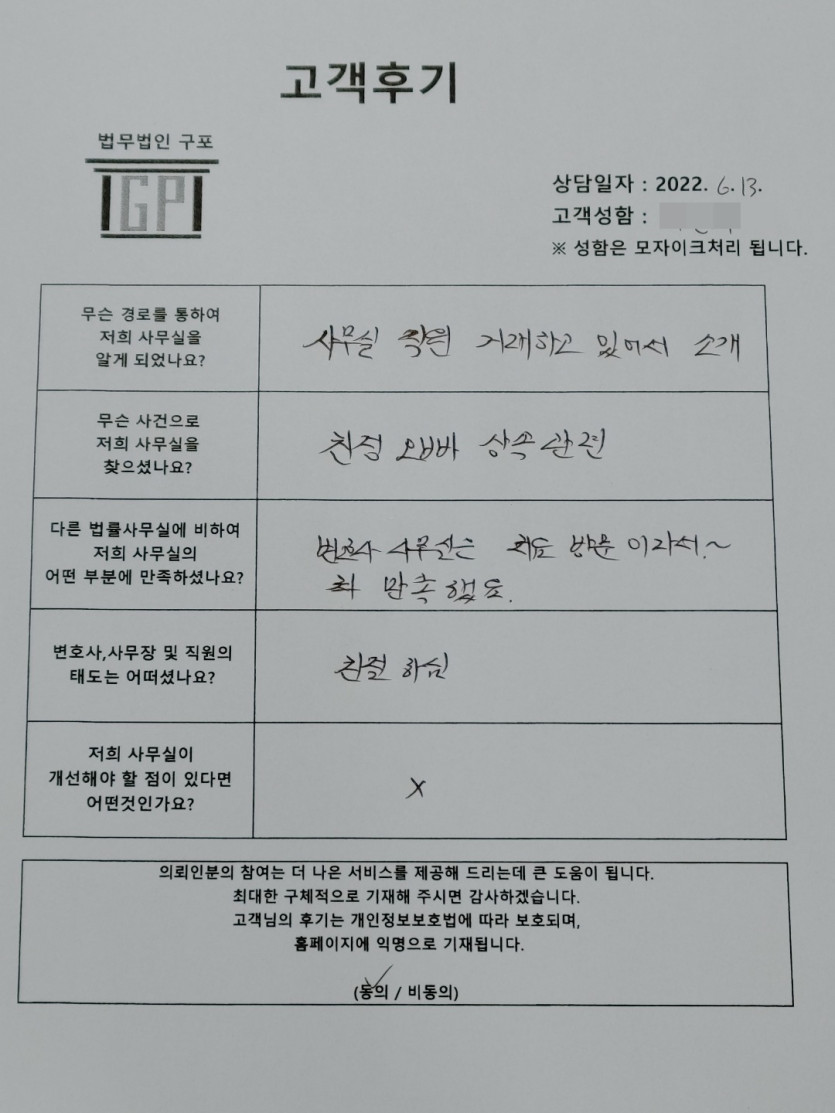 고객후기
법무법인 구포
IGPI
상담일자 : 2022. 6. 13.
고객성함 :
※ 성함은 모자이크처리 됩니다.
무슨 경로를 통하여
저희 사무실을
알게 되었나요?
사무실 직원 거래하고 있어서 소개
무슨 사건으로
저희 사무실을
찾으셨나요?
친정 오빠 상속 관련
다른 법률사무실에 비하여
저희 사무실의
어떤 부분에 만족하셨나요?
변호사 사무실은 처음 방문 이라서.~
만족했요.
변호사,사무장 및 직원의
태도는 어떠셨나요?
친절 하심
저희 사무실이
개선해야 할 점이 있다면
어떤것인가요?
X
의뢰인분의 참여는 더 나은 서비스를 제공해 드리는데 큰 도움이 됩니다.
최대한 구체적으로 기재해 주시면 감사하겠습니다.
고객님의 후기는 개인정보보호법에 따라 보호되며,
홈페이지에 익명으로 기재됩니다.
(동의 / 비동의)